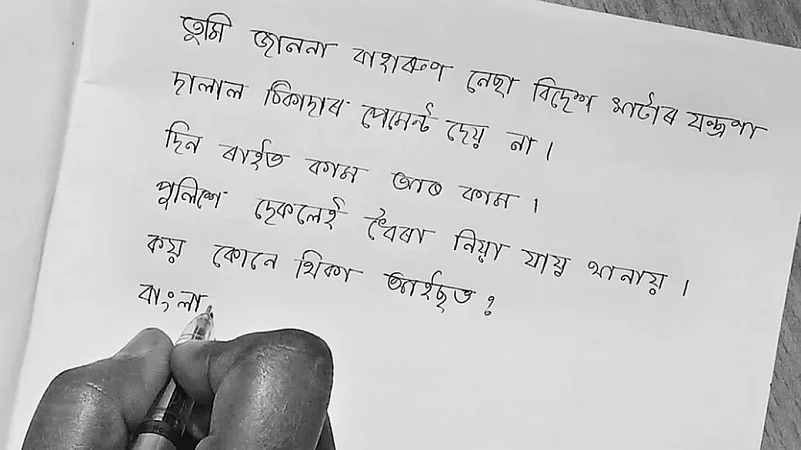 তুমি জাননা বাহাৰুণ নেছা বিদেশ খাটাৰ যন্ত্ৰণা
দালাল ঠিকাদাৰ পেমেন্ট দেয় না।
দিন ৰাইত কাম আৰ কাম।
পুলিশে দেকলেই ধৈৰা নিয়া যায় থানায়।
কয় কোনে থিকা আইছত?
বাংলা